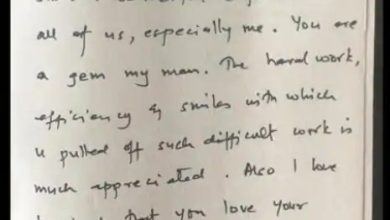 all of us, especially me. You are
a gem my man. The hard work,
efficiency & smiles with which
u pulled off such difficult work is
much appreciated. Also I love
that you love your